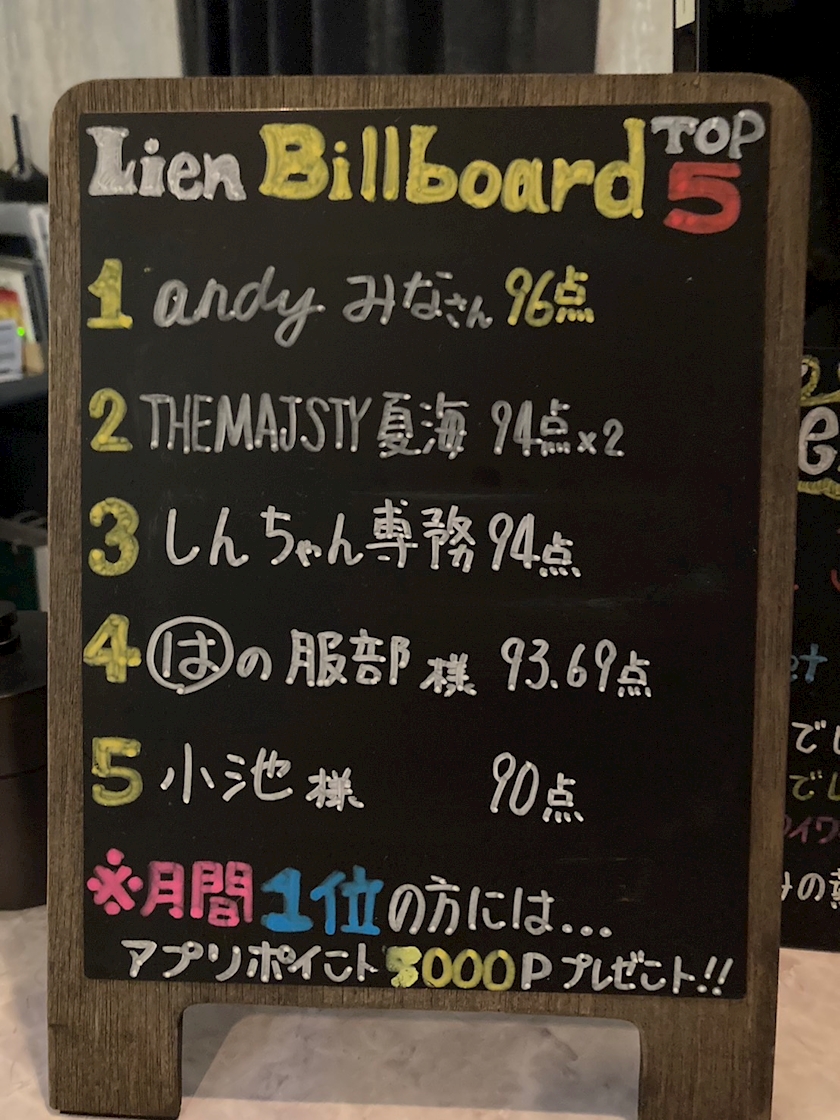 Lien Billboard TOP 5
1 andy みなさん 96点
2 THEMAJSTY 夏海 94点×2
3 しんちゃん専務 94点
4 はの服部様 93.69点
5 小池様 90点
※月間1位の方には...
アプリポイント 5000P プレゼント!!